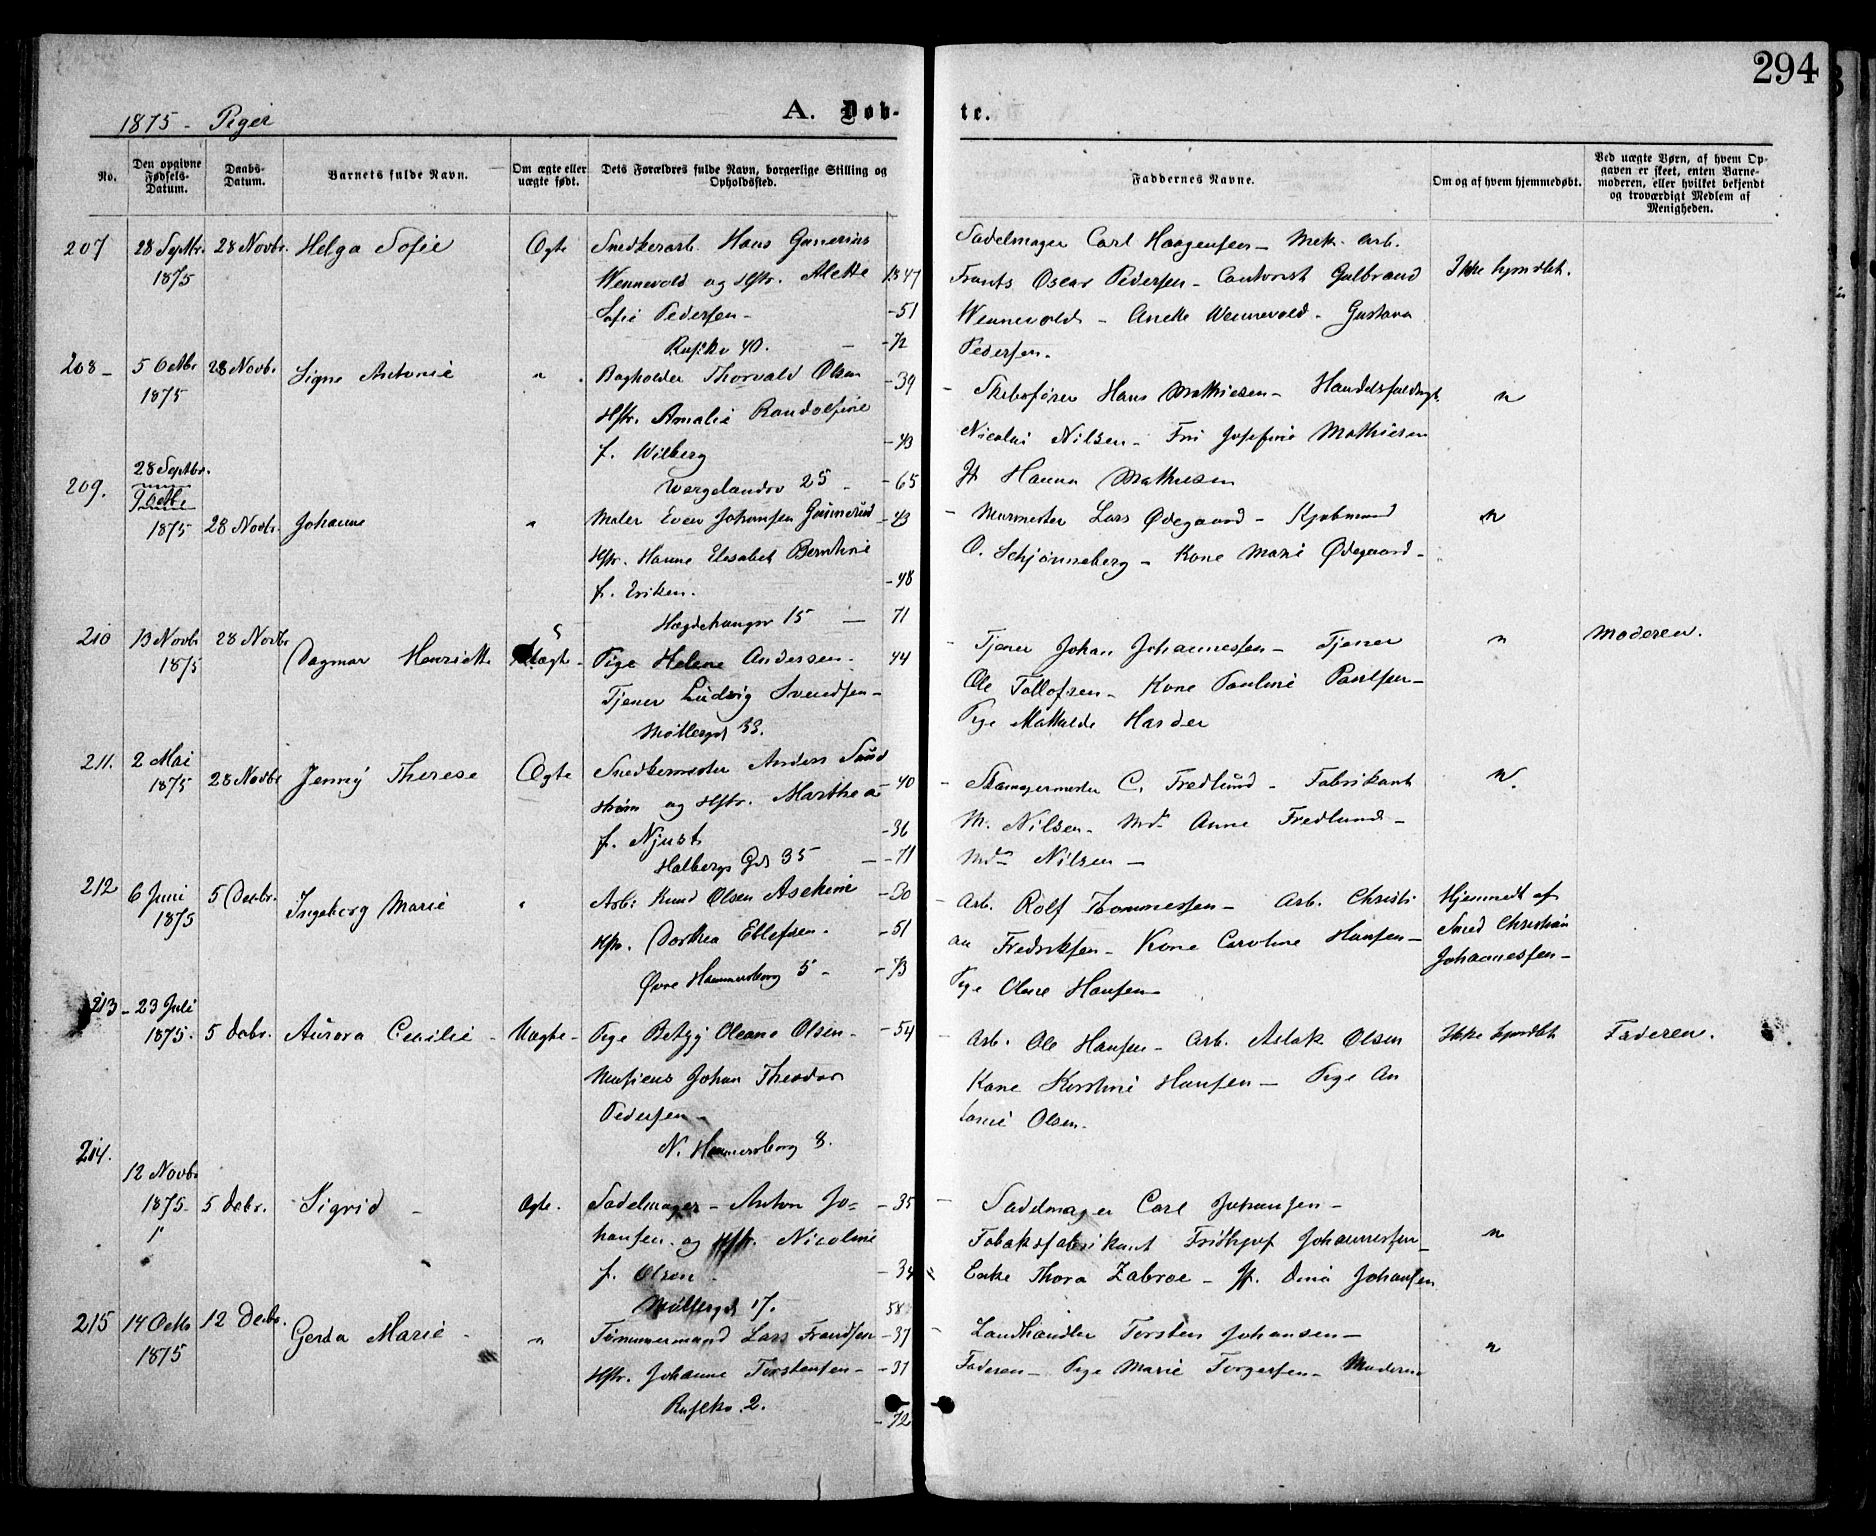 294
1875 - Piger
A. Døb-
te.
No.
Den opgivne Fødsels-Datum.
Daabs-Datum.
Barnets fulde Navn.
Om ægte eller uægte født.
Dets Forældres fulde Navn, borgerlige Stilling og Opholdssted.
Faddernes Navne.
Om og af hvem hjemmedøbt.
Ved uægte Børn, af hvem Opgaven er skeet, enten Barnemoderen, eller hvilket bekjendt og troværdigt Medlem af Menigheden.
207 28 Septbr. 1875 28 Novbr. Helga Sofie Ægte
Snedkerarb. Hans Gunerius
Wennevold og Hstr. Alette 1847
Sofie Pedersen - -51
Rusløkv 40. - -72
Sadelmager Carl Haagensen - Mek. arb.
Frants Oscar Pedersen - Contorist Gulbrand
Wennevold - Anette Wennevold - Gustava
Pedersen.
Ikke hjmdbt.
208 - 5 Octbr 1875 28 Novbr. Signe Antonie "
Bogholder Thorvald Olsen -39
Hstr. Amalie Randolfine
f. Wilberg -43
Wergelandsv 25 - -65
- Skibsfører Hans Mathiesen - Handelsfuldmgt.
Nicolai Nilsen - Fru Josefine Mathiesen
Jf Hanna Mathiesen
"
209. 28 Septbr. 9 Octbr 1875 28 Novbr. Johanne "
Maler Even Johansen Gunnerud -43
Hstr. Hanne Elisabet Bernthine
f. Eriksen. -48
Hægdehaugsv 15 - 71
- Murmester Lars Ødegaard - Kjøbmand
O. Schjønneberg - Kone Marie Ødegaard -
"
210 13 Novbr 1875 28 Novbr Dagmar Henriette Uægte -
Pige Helene Andersen. 44
Tjener Ludvig Svendsen -
Møllergd 33.
- Tjener Johan Johannessen - Tjener
Ole Tollofsen - Kone Pauline Paulsen -
Pige Mathilde Harder
"
Moderen.
211. 2 Mai 1875 28 Novbr Jenny Therese Ægte
Snedkermester Anders Sund -40
strøm og Hstr. Marthea
f. Njust -36
Holbergs Gd 35 - -71
- Skomagermester C. Fredlund - Fabrikant
M. Nilsen - Md Anne Fredlund -
Md Nilsen -
"
212 6 Juni 1875 5 Decbr. Ingeborg Marie "
Arb. Knud Olsen -50
Hstr. Dorthea Ellefsen. -51
Øvre Hammersborg 5 - -73
- Arb. Rolf Thommessen - Arb. Christi
an Fredriksen - Kone Caroline Hansen -
Pige Oline Hansen
Hjemmedt af
Smed Christian
Johannessen -
213 - 23 Juli 1875. 5 Decbr. Aurora Cecilie - Uægte -
Pige Betzy Oleane Olsen - -54
Musicus Johan Theodor
Pedersen -
N. Hammersborg 8.
- Arb. Ole Hansen - Arb. Aslak Olsen
Kone Kirstine Hansen - Pige An
tonie Olsen.
Ikke hjmdbt
Faderen.
214. 12 Novbr 1875 - 5 Decbr. Sigrid - Ægte.
Sadelmager - Anton Jo= -35
hansen. og Hstr. Nicoline
f. Olsen - -34
Møllergd 17. 58
- Sadelmager Carl Johansen -
Tobaksfabrikant Fridthjof Johannessen -
Enke Thora Zabroe - Jf. Dina Johansen
"
215 14 Octb 1875 12 Decbr. Gerda Marie - "
Tømmermand Lars Frandsen -37
Hstr. Johanne Torstensen - -31
Rusløkv. 2. -72
- Landhandler Torsten Johansen -
Faderen - Pige Marie Torgersen - Moderen
"